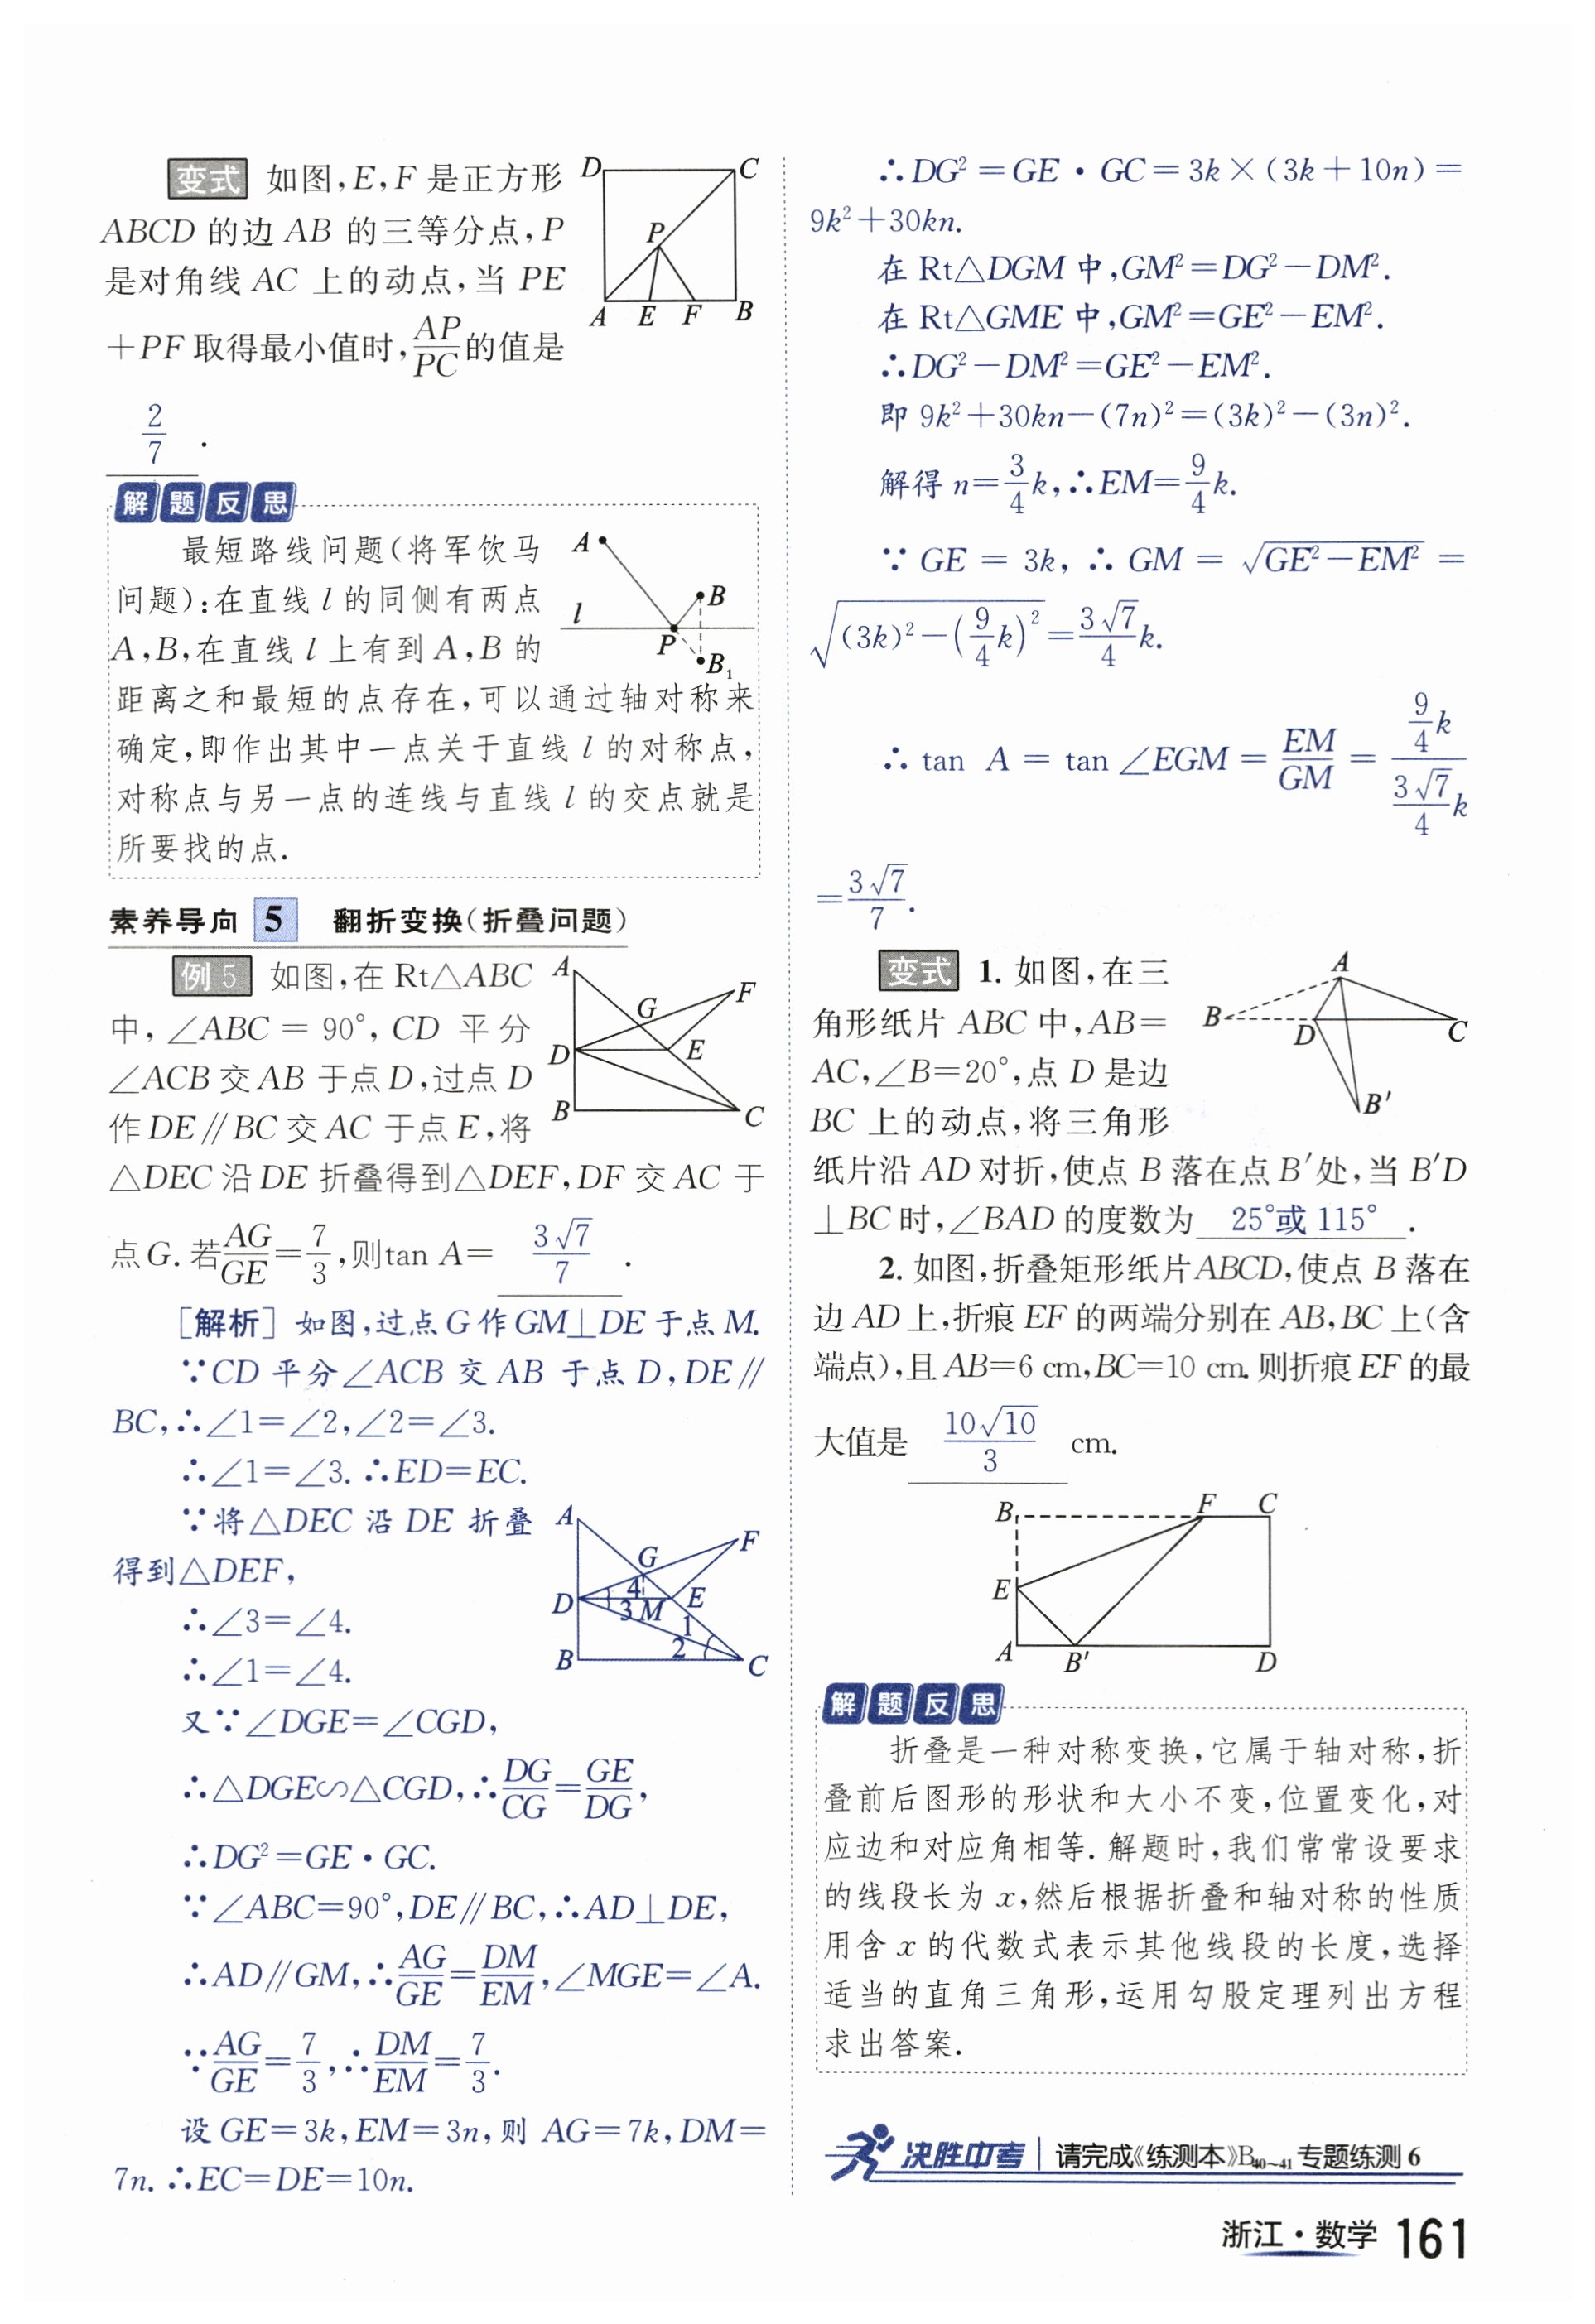 变式 如图,E,F 是正方形
ABCD 的边 AB 的三等分点,P
是对角线 AC 上的动点,当 PE
+PF 取得最小值时,AP/PC的值是
2/7 .
D C P A E F B
解题反思
最短路线问题(将军饮马
问题):在直线 l 的同侧有两点
A,B,在直线 l 上有到 A,B 的
距离之和最短的点存在,可以通过轴对称来
确定,即作出其中一点关于直线 l 的对称点,
对称点与另一点的连线与直线 l 的交点就是
所要找的点.
A B l P B₁
素养导向 5 翻折变换(折叠问题)
例 5 如图,在 Rt△ABC
中,∠ABC = 90°, CD 平分
∠ACB 交 AB 于点 D,过点 D
作 DE∥BC 交 AC 于点 E,将
△DEC 沿 DE 折叠得到△DEF,DF 交 AC 于
点 G. 若AG/GE=7/3,则tan A= 3√7/7 .
A G F D E B C
[解析] 如图,过点 G 作 GM⊥DE 于点 M.
∵CD 平分∠ACB 交 AB 于点 D,DE∥
BC,∴∠1=∠2,∠2=∠3.
∴∠1=∠3. ∴ED=EC.
∵将△DEC 沿 DE 折叠
得到△DEF,
∴∠3=∠4.
∴∠1=∠4.
A G F D 4 3 M E 1 2 B C
又∵∠DGE=∠CGD,
∴△DGE∽△CGD,∴DG/CG=GE/DG,
∴DG²=GE·GC.
∵∠ABC=90°,DE∥BC,∴AD⊥DE,
∴AD∥GM,∴AG/GE=DM/EM,∠MGE=∠A.
∵AG/GE=7/3,∴DM/EM=7/3.
设 GE=3k,EM=3n,则 AG=7k,DM=
7n. ∴EC=DE=10n.
∴DG²=GE·GC=3k×(3k+10n)=
9k²+30kn.
在 Rt△DGM 中,GM²=DG²-DM².
在 Rt△GME 中,GM²=GE²-EM².
∴DG²-DM²=GE²-EM².
即 9k²+30kn-(7n)²=(3k)²-(3n)².
解得 n=3/4k,∴EM=9/4k.
∵ GE = 3k, ∴ GM = √(GE²-EM²) =
√((3k)²-(9/4k)²)=3√7/4k.
∴ tan A = tan ∠EGM = EM/GM = (9/4k)/(3√7/4k)
=3√7/7.
变式 1. 如图,在三
角形纸片 ABC 中,AB=
AC,∠B=20°,点 D 是边
BC 上的动点,将三角形
纸片沿 AD 对折,使点 B 落在点 B′处,当 B′D
⊥BC 时,∠BAD 的度数为 25°或 115° .
A B D C B′
2. 如图,折叠矩形纸片ABCD,使点 B 落在
边 AD 上,折痕 EF 的两端分别在 AB,BC 上(含
端点),且 AB=6 cm,BC=10 cm. 则折痕 EF 的最
大值是 10√10/3 cm.
B F C E A B′ D
解题反思
折叠是一种对称变换,它属于轴对称,折
叠前后图形的形状和大小不变,位置变化,对
应边和对应角相等. 解题时,我们常常设要求
的线段长为 x,然后根据折叠和轴对称的性质
用含 x 的代数式表示其他线段的长度,选择
适当的直角三角形,运用勾股定理列出方程
求出答案.
决胜中考 请完成《练测本》B40~41专题练测 6
浙江·数学 161